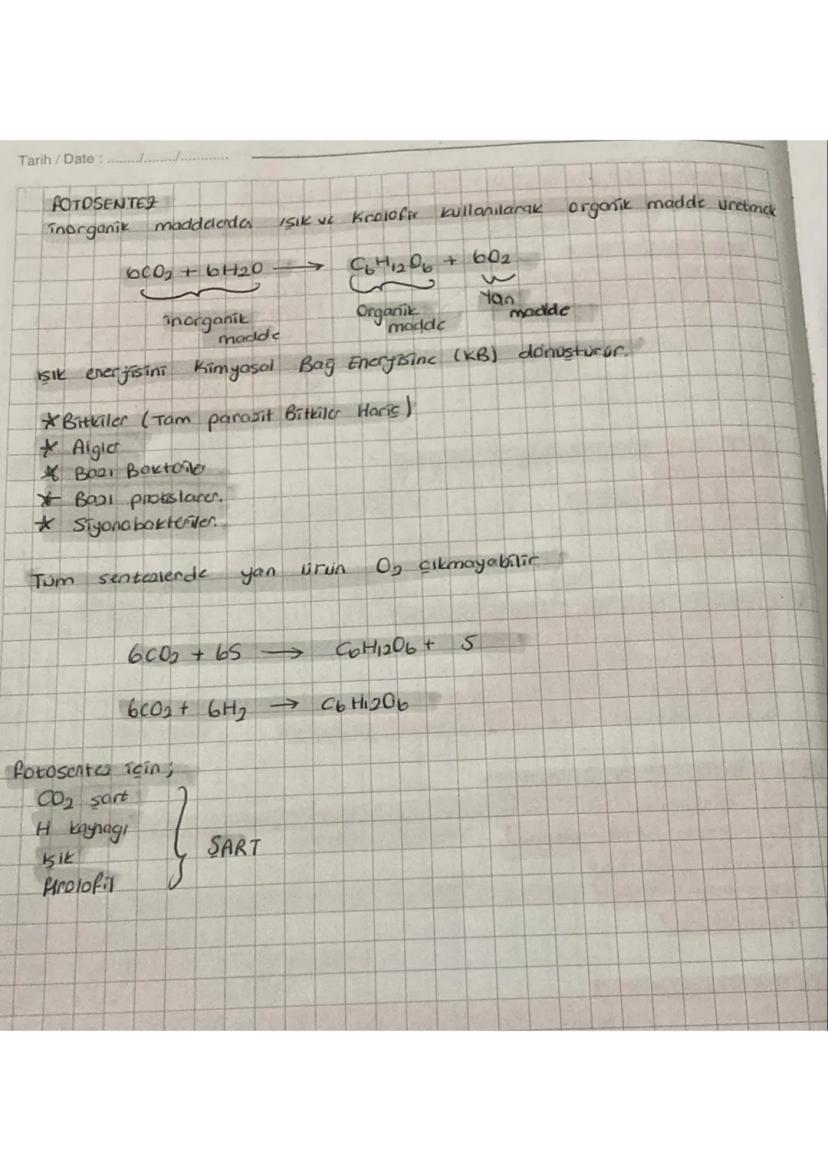 Tarih / Date : ......../......../............
FOTOSENTEZ
inorganik maddelerden ışık ve Krolofil kullanılarak organik madde üretmek
6CO2 + 6H2O → C6H12O6 + 6O2
inorganik madde
Organik madde
Yan madde
ışık enerjisini Kimyasal Bağ Enerjisine (KB) dönüştürür.
* Bitkiler (Tam parazit Bitkiler Hariç)
* Algler
* Bazı Bakteriler
* Bazı protistaler.
* Siyanobakteriler.
Tüm sentezlerde yan ürün O2 çıkmayabilir
6CO2 + 6S → C6H12O6 + S
6CO2 + 6H2 → C6H12O6
Fotosentez için;
CO2 şart
H kaynağı
ışık
Krolofil
ŞART